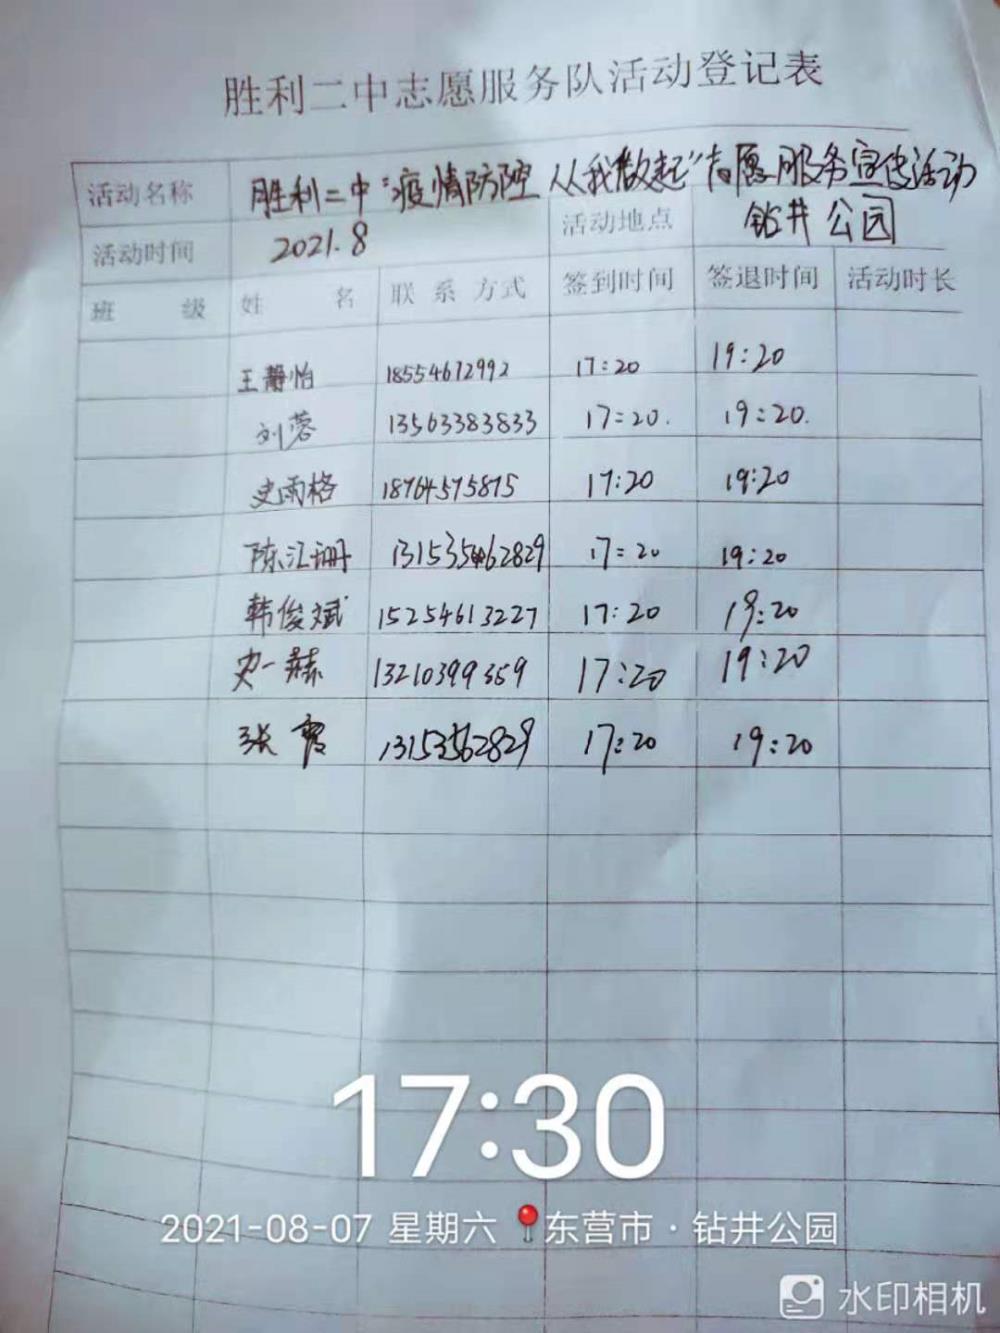 胜利二中志愿服务队活动登记表
活动名称 胜利二中"疫情防控 从我做起"志愿服务宣传活动
活动时间 2021.8 活动地点 钻井公园
班 级 姓 名 联 系 方式 签到时间 签退时间 活动时长
王静怡 18554672992 17:20 19:20
刘蓉 13563383833 17:20. 19:20.
史雨格 18764575875 17:20 19:20
陈江珊 17:20 19:20
韩俊斌 15254613227 17:20 19:20
史一赫 13210399359 17:20 19:20
张霞 13153562829 17:20 19:20
17:30
2021-08-07 星期六 东营市·钻井公园
水印相机